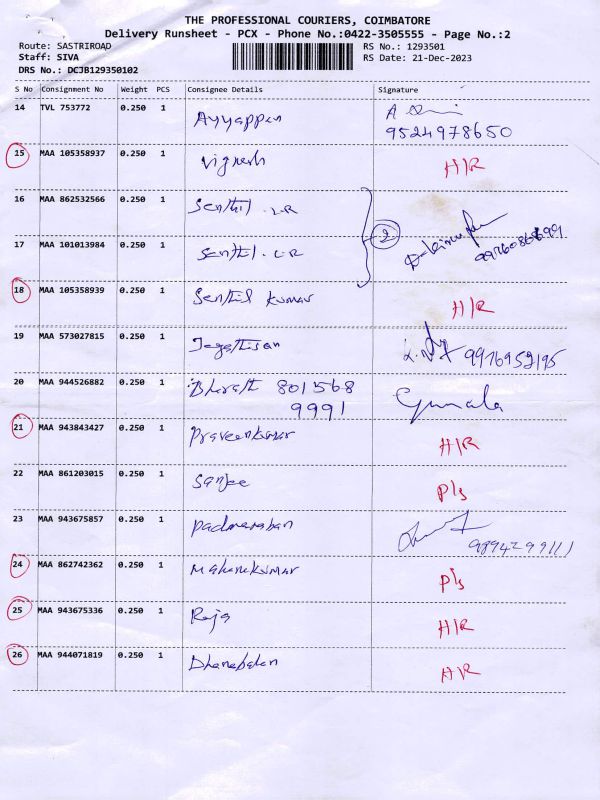 THE PROFESSIONAL COURIERS, COIMBATORE
Delivery Runsheet - PCX - Phone No.:0422-3505555 - Page No.:2
Route: SASTRIROAD RS No.: 1293501
Staff: SIVA RS Date: 21-Dec-2023
DRS No.: DCJB129350102
S No Consignment No Weight PCS Consignee Details Signature
14 TVL 753772 0.250 1 Ayyappan
9524978650
15 MAA 105358937 0.250 1 Vignesh H/R
16 MAA 862532566 0.250 1 Senthil .LR
2
17 MAA 101013984 0.250 1 Senthil. LR
18 MAA 105358939 0.250 1 Senthil Kumar H/R
19 MAA 573027815 0.250 1 Jegathisan 9976952195
20 MAA 944526882 0.250 1 Bharath 801568
9991
21 MAA 943843427 0.250 1 Praveenkumar H/R
22 MAA 861203015 0.250 1 Sanjee P/s
23 MAA 943675857 0.250 1 Padmanaban
9894299111
24 MAA 862742362 0.250 1 P/s
25 MAA 943675336 0.250 1 Raja H/R
26 MAA 944071819 0.250 1 Dhanabalan H/R